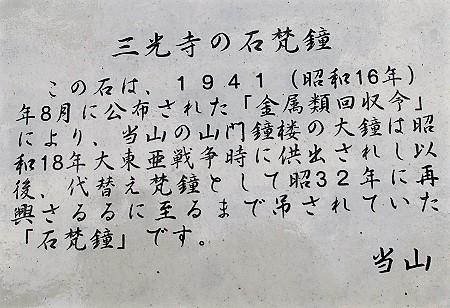 三光寺の石梵鐘
この石は、１９４１（昭和16年）
年8月に公布された「金属類回収令」
により、当山の山門鐘楼の大鐘は昭
和18年大東亜戦争時に供出されし以
後、代替え梵鐘として昭３２年に再
興さるるに至るまで吊されていた
「石梵鐘」です。
当山